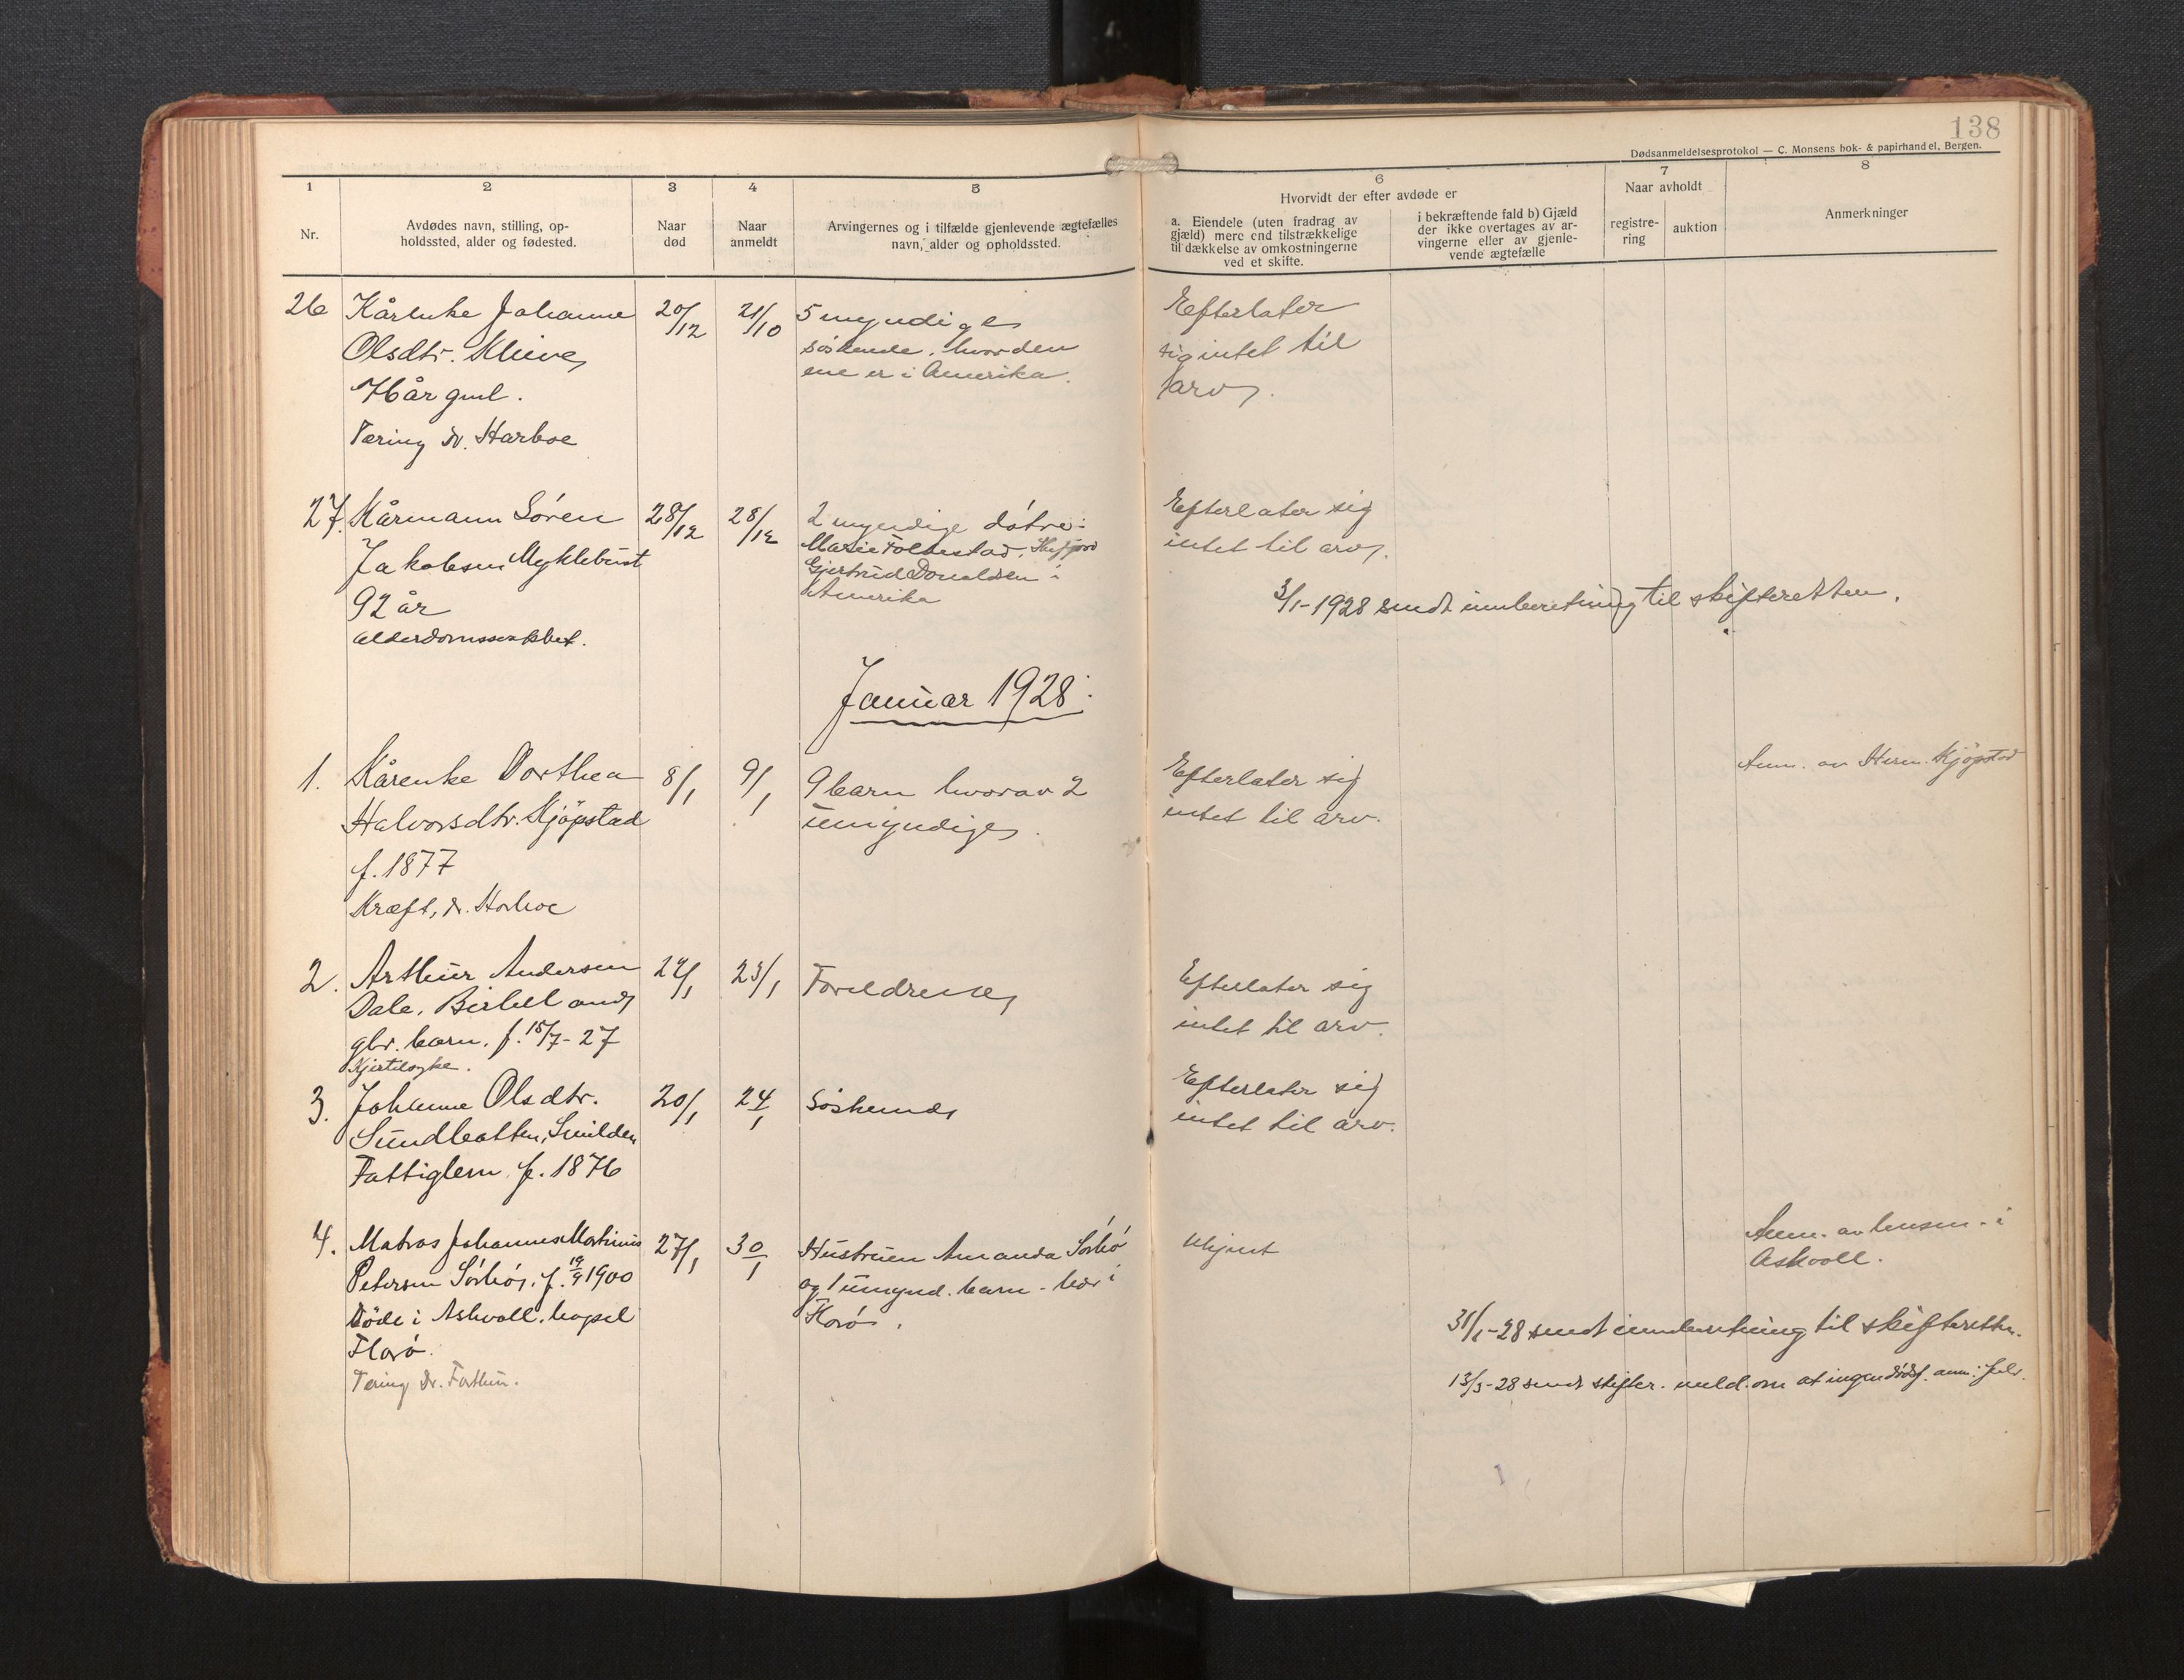 138
Dødsanmeldelsesprotokol — C. Monsens bok- & papirhandel, Bergen.
1
2
3
4
5
6
7
8
Nr.
Avdødes navn, stilling, op-
holdssted, alder og fødested.
Naar
død
Naar
anmeldt
Arvingernes og i tilfælde gjenlevende ægtefælles
navn, alder og opholdssted.
Hvorvidt der efter avdøde er
a. Eiendele (uten fradrag av
gjæld) mere end tilstrækkelige
til dækkelse av omkostningerne
ved et skifte.
i bekræftende fald b) Gjæld
der ikke overtages av ar-
vingerne eller av gjenle-
vende ægtefælle
Naar avholdt
registre-
ring
auktion
Anmerkninger
26 Kårenke Johanne 20/12 21/10 5 myndige Efterlater
Olsdtr. Kleive, søskende, hvorden sig intet til
ene er i Amerika. arv.
76 år gml.
Tæring dr. Harboe
27. Kårmann Søren 28/12 28/12 2 myndige døtre: Efterlater sig
Jakobsen Myklebust Marie Folkestad, intet til arv.
Gjertrud Donaldsen i
92 år Amerika
3/1-1928 sendt innberetning til skifteretten.
alderdomssvakhet.
Januar 1928.
1. Kårenke Dorthea 8/1 9/1 9 barn hvorav 2 Efterlater sig Anm. av Herm. Kjöpstad
Halvorsdtr. Kjöpstad umyndige. intet til arv.
f. 1877
Kræft, dr. Harboe
2. Arthur Andersen 24/1 23/1 Foreldrene Efterlater sig
Dale, intet til arv.
gbr. barn. f. 15/7-27
Kjertelsyke.
3. Johanne Olsdtr. 20/1 24/1 Søskende Efterlater sig
Sundbotten, intet til arv.
Fattiglem f. 1876
4. Matros Johannes Martinus 27/1 30/1 Hustruen Amanda Sørbø Ukjent Anm. av lensm. i
Askvoll.
Petersen Sørbø, f. 19/9 1900 og 1 umynd. barn - bor i
Døde i Askvoll. Florø.
31/1-28 sendt innberetning til skifteretten.
Florø.
Tæring Dr.
13/3-28 sendt skifter. meld. om at ingen dødsf. anm. i febr.